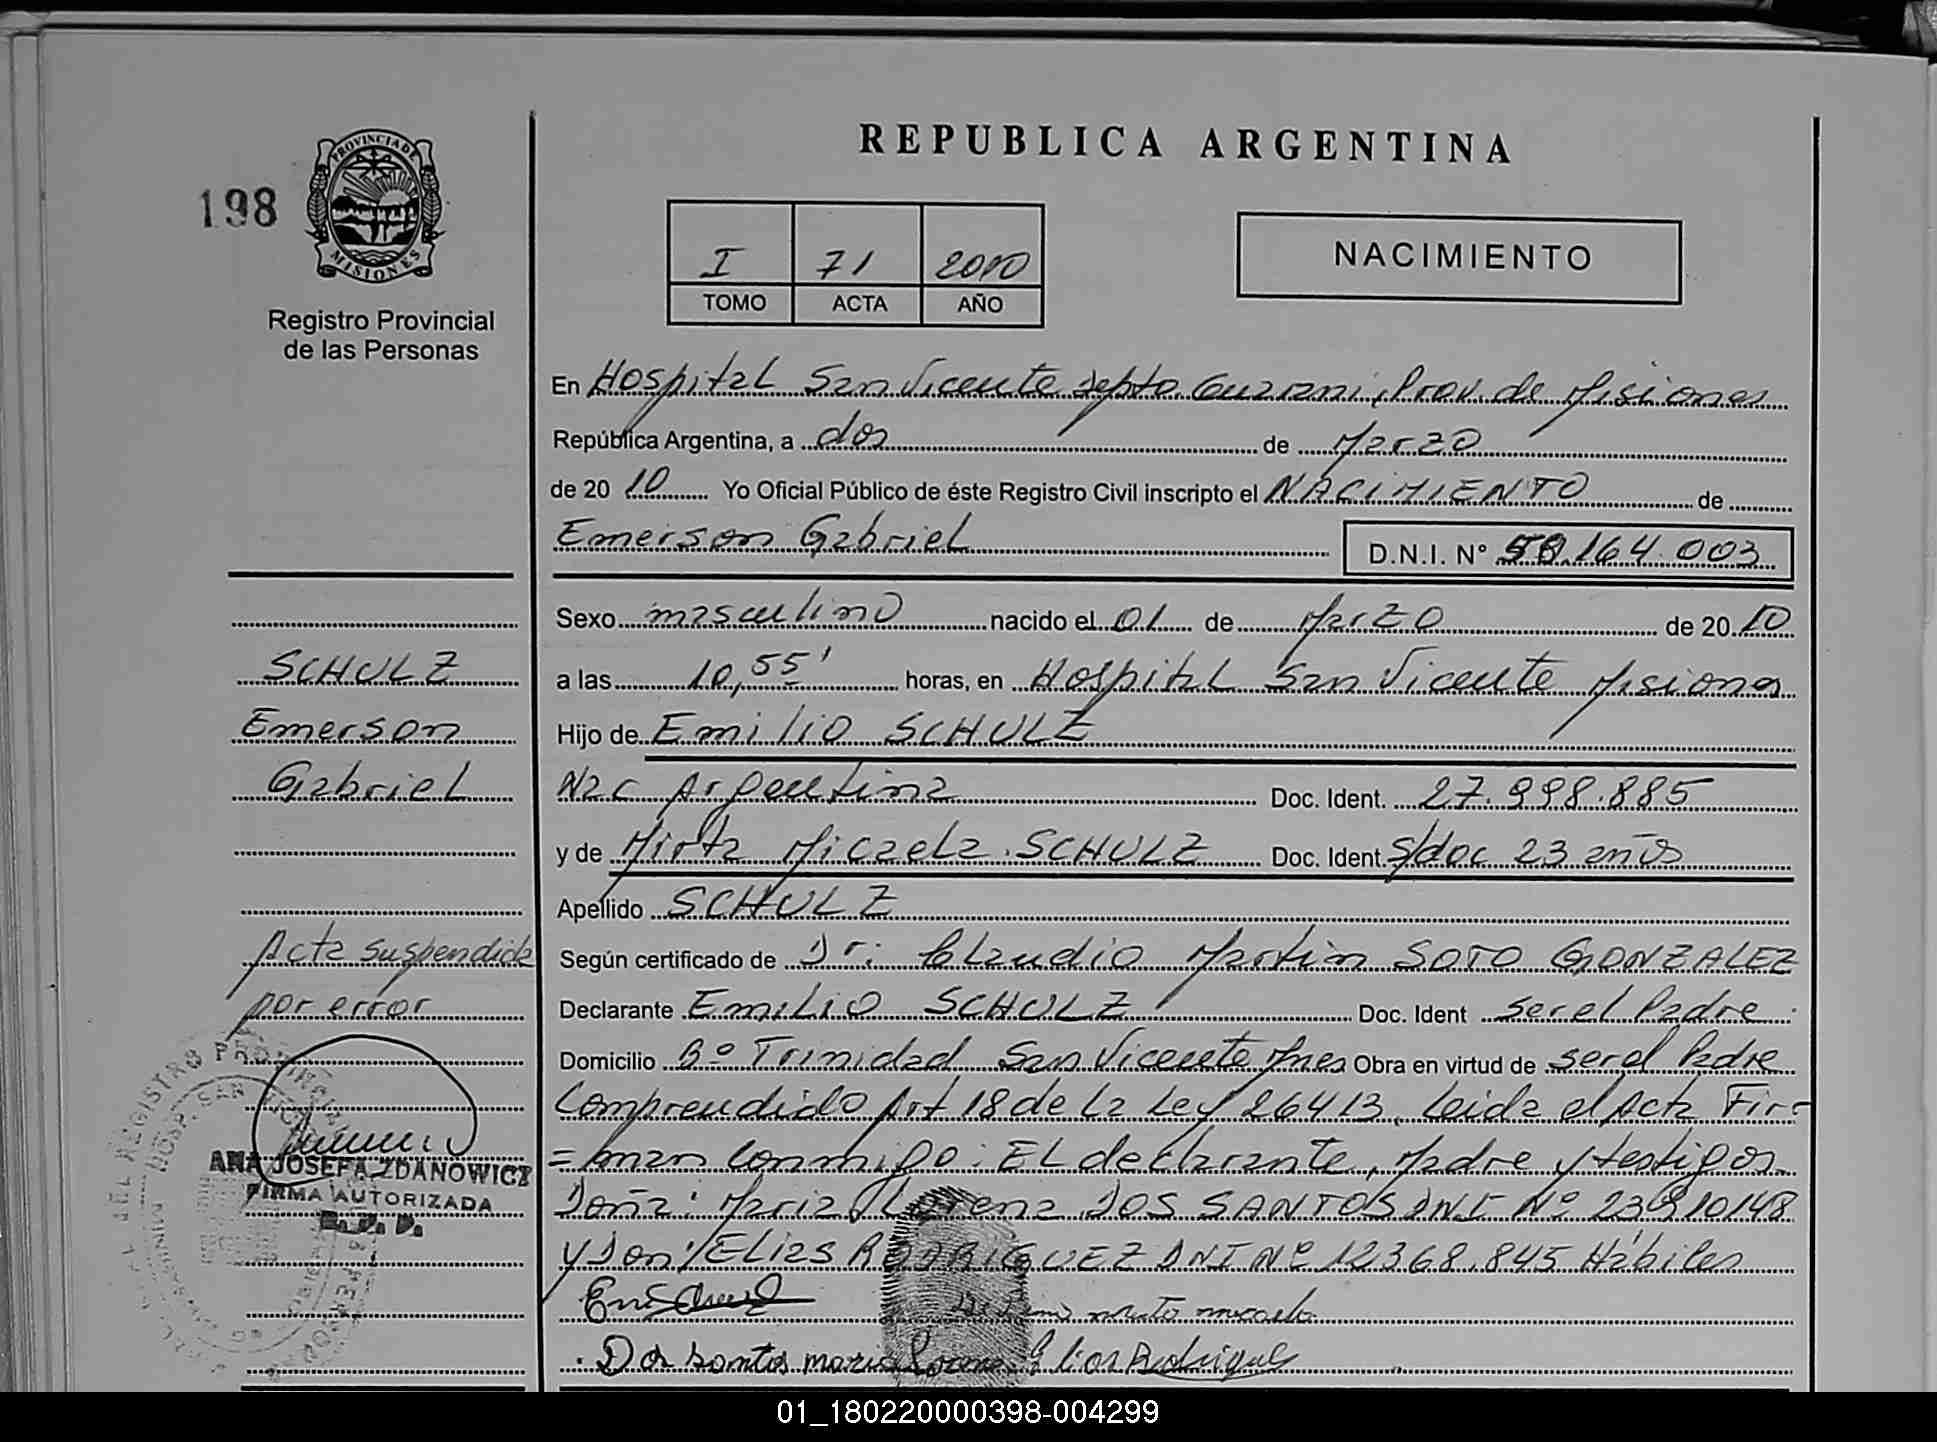 REPUBLICA ARGENTINA
198
PROVINCIA DE
MISIONES
Registro Provincial
de las Personas
I 71 2010
TOMO ACTA AÑO
NACIMIENTO
En Hospital San Vicente Depto. Guarani, Prov. de Misiones
República Argentina, a dos de Marzo
de 20 10 Yo Oficial Público de éste Registro Civil inscripto el NACIMIENTO de
Emerson Gabriel D.N.I. Nº 50.164.003
Sexo masculino nacido el 01 de Marzo de 20 10
a las 10,55' horas, en Hospital San Vicente Misiones
Hijo de Emilio SCHULZ
Nac Argentina Doc. Ident. 27.998.885
y de Mirta Micaela SCHULZ Doc. Ident. S/doc 23 años
Apellido SCHULZ
Según certificado de Dr: Claudio Martin SOTO GONZALEZ
Declarante Emilio SCHULZ Doc. Ident ser el Padre
Domicilio Bº Trinidad San Vicente Mnes Obra en virtud de ser el Padre
Comprendido Art 18 de la Ley 26413. Leida el Acta Fir-
=man conmigo: El declarante, Madre y testigos
Doña: Maria Lorena DOS SANTOS DNI Nº 23910148
y Don: Elias RODRIGUEZ DNI Nº 12368.845 Hábiles
Dos Santos maria Lorena Elias Rodrigues
SCHULZ
Emerson
Gabriel
Acta suspendida
por error
ANA JOSEFA ZDANOWICZ
FIRMA AUTORIZADA
R. P. P.
01_180220000398-004299